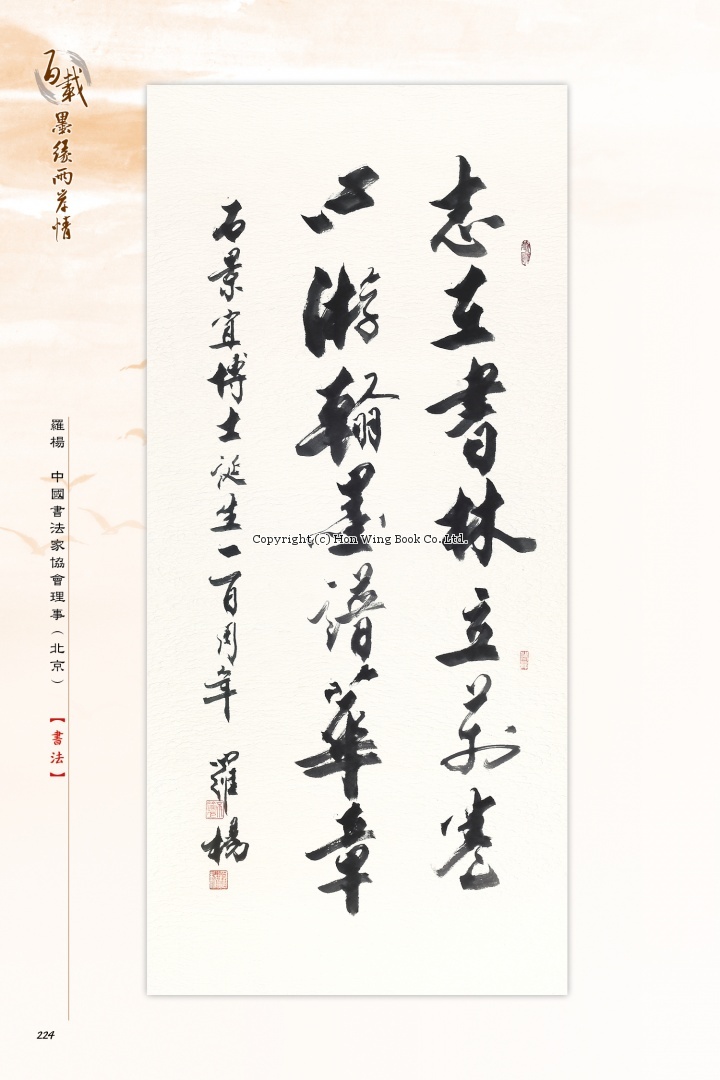 百載墨緣兩岸情
志在書林立萬卷
心游翰墨譜華章
石景宜博士誕生一百周年 羅楊
Copyright (c) Hon Wing Book Co. Ltd.
羅楊 中國書法家協會理事（北京）【書法】
224